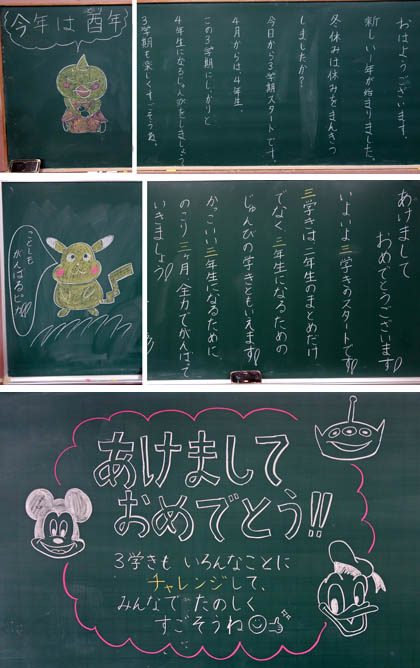 今年は 酉年
おはようございます。
新しい1年が始まりました。
冬休みは休みをまんきつ
しましたか?
今日から3学期スタートです。
4月からは4年生。
この3学期にしっかりと
4年生になるじゅんびをしましょう。
3学期も楽しくすごそうね。
ことしも
がんばるピカ
あけまして
おめでとうございます
いよいよ三学きのスタートです
三学きは二年生のまとめだけ
でなく、三年生になるための
じゅんびの学きともいえます
かっこいい三年生になるために、
のこり三ヶ月、全力でがんばって
いきましょう
あけまして
おめでとう!!
3学きも いろんなことに
チャレンジして、
みんなで たのしく
すごそうね